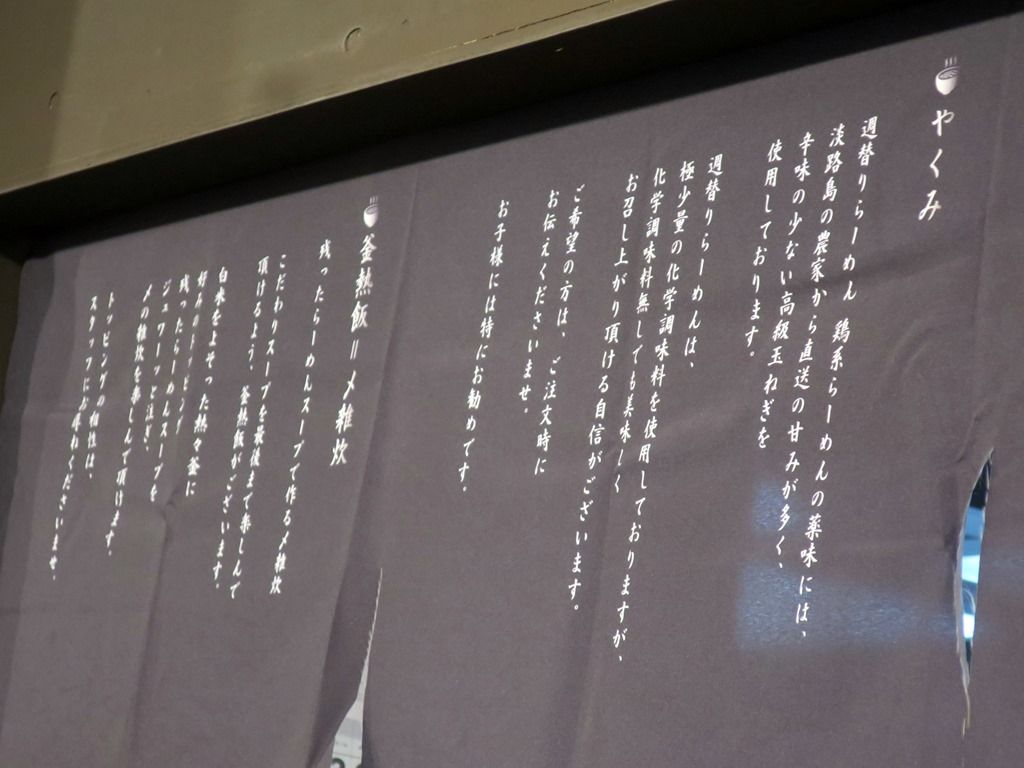 やくみ
週替りらーめん 鶏系らーめんの薬味には、
淡路島の農家から直送の甘みが多く、
辛味の少ない高級玉ねぎを
使用しております。
週替りらーめんは、
極少量の化学調味料を使用しておりますが、
化学調味料無しでも美味しく
お召し上がり頂ける自信がございます。
ご希望の方は、ご注文時に
お伝えくださいませ。
お子様には特にお勧めです。
釜熱飯=〆雑炊
残ったらーめんスープで作る〆雑炊
こだわりスープを最後まで楽しんで
頂けるよう、釜熱飯がございます。
白米をよそった熱々釜に
好みのトッピング
残ったらーめんスープを
ジュワーッと注ぎ、
〆の雑炊を楽しんで頂けます。
トッピングの相性は、
スタッフにお尋ねくださいませ。